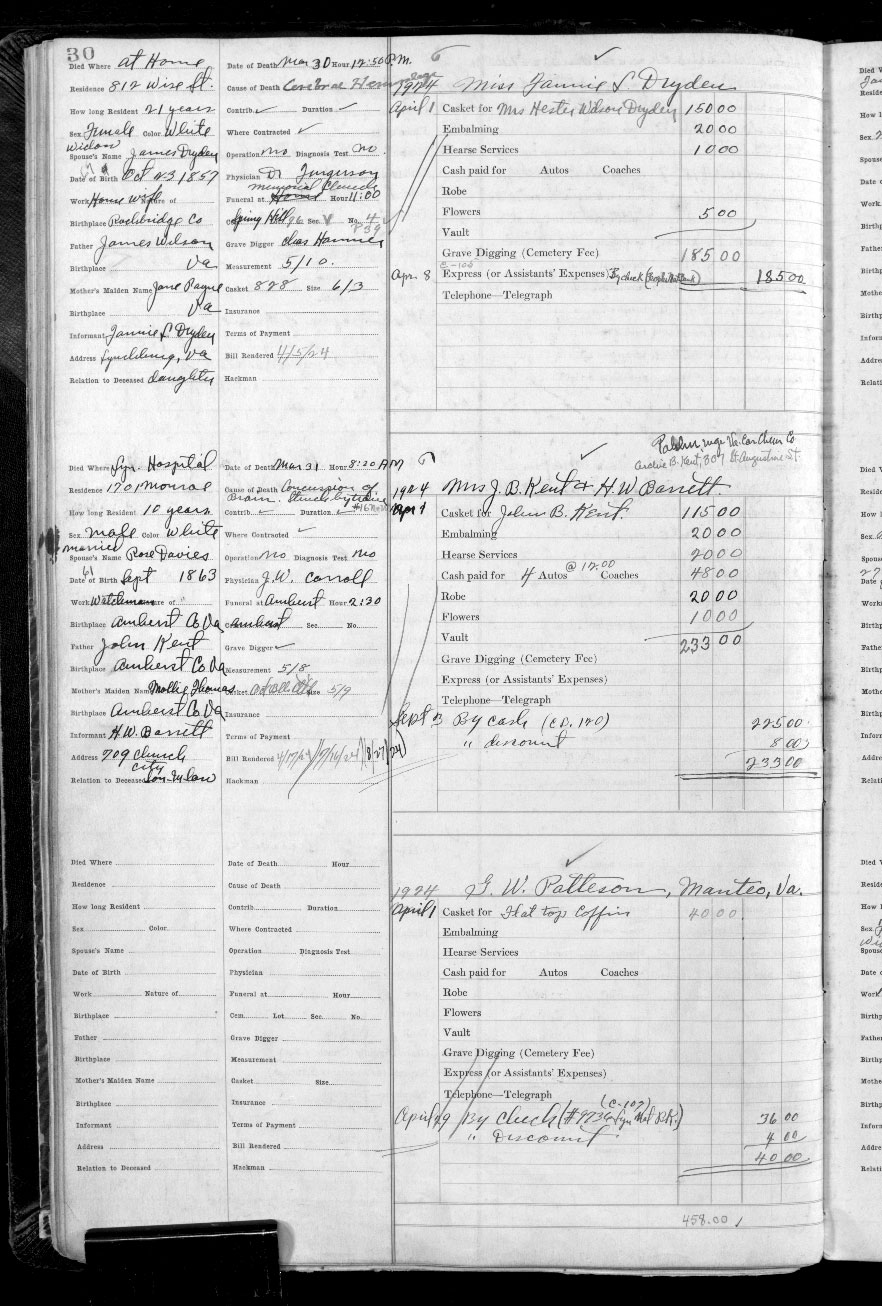 30
Died Where at Home
Residence 812 Wise St.
How long Resident 21 years
Sex Female Color White
Widow
Spouse's Name James Dryden
Date of Birth Oct 23 1857
Work House wife Nature of
Birthplace Rockbridge Co
Father James Wilson
Birthplace Va
Mother's Maiden Name Jane Payne
Birthplace Va
Informant Fannie S. Dryden
Address Lynchburg, Va
Relation to Deceased daughter
Date of Death Mar 30 Hour 12:50 P.M.
Cause of Death Cerebral Hemorrhage
Contrib. ✓ Duration ✓
Where Contracted ✓
Operation no Diagnosis Test no.
Physician Dr
Memorial Church
Funeral at Home Hour 11:00
Spring Hill 96 Sec. V No. 4
P 39
Grave Digger Chas
Measurement 5/10.
Casket 828 Size 6/3
Insurance
Terms of Payment
Bill Rendered 4/15/24
Hackman
6 ✓
1924 Miss Fannie S Dryden
April 1 Casket for Mrs Hester Wilson Dryden 150 00
Embalming 20 00
Hearse Services 10 00
Cash paid for Autos Coaches
Robe
Flowers 5 00
Vault
Grave Digging (Cemetery Fee) 185 00
C-100
Apr. 8 Express (or Assistants' Expenses) By check 185 00
Telephone—Telegraph
Died Where Lyn. Hospital
Residence 1701 Monroe
How long Resident 10 years
Sex male Color White
married
Spouse's Name Rose Davies
61
Date of Birth Sept 1863
Work Watchman Nature of
Birthplace Amherst Co Va
Father John Kent
Birthplace Amherst Co Va
Mother's Maiden Name Mollie Thomas
Birthplace Amherst Co Va
Informant H.W. Barrett
Address 709 Church
City
Relation to Deceased Son-in-law
Date of Death Mar 31 Hour 8:20 AM
Cause of Death Concussion of
Brain. Struck by train
Contrib. ✓ Duration ✓
Where Contracted ✓
Operation no Diagnosis Test no
Physician J.W. Carroll
Funeral at Amherst Hour 2:30
Amherst Sec. No.
Grave Digger ✓
Measurement 5/8
Casket Size 5/9
Insurance
Terms of Payment
Bill Rendered 4/17/24 / 7/16/24 / (8/27/24)
Hackman
Va. Car. Chem Co
B. Kent, 307 St. Augustine St.
✓
1924 Mrs J. B. Kent & H. W Barrett.
Apr 1 Casket for John B. Kent. 115 00
Embalming 20 00
Hearse Services 20 00
@ 12.00
Cash paid for 4 Autos Coaches 48 00
Robe 20 00
Flowers 10 00
Vault 233 00
Grave Digging (Cemetery Fee)
Express (or Assistants' Expenses)
Telephone—Telegraph
Sept 3 By cash (CD. 120) 225 00
" discount 8 00
233 00
Died Where
Residence
How long Resident
Sex Color
Spouse's Name
Date of Birth
Work Nature of
Birthplace
Father
Birthplace
Mother's Maiden Name
Birthplace
Informant
Address
Relation to Deceased
Date of Death Hour
Cause of Death
Contrib. Duration
Where Contracted
Operation Diagnosis Test
Physician
Funeral at Hour
Cem. Lot Sec. No.
Grave Digger
Measurement
Casket Size
Insurance
Terms of Payment
Bill Rendered
Hackman
✓
1924 G. W. Patteson, Manteo, Va.
April 1 Casket for Flat top Coffin 40 00
Embalming
Hearse Services
Cash paid for Autos Coaches
Robe
Flowers
Vault
Grave Digging (Cemetery Fee)
Express (or Assistants' Expenses)
Telephone—Telegraph
(C-107)
April 29 By Check (#9736 Lyn Nat Bk.) 36 00
" Discount 4 00
40 00
458.00